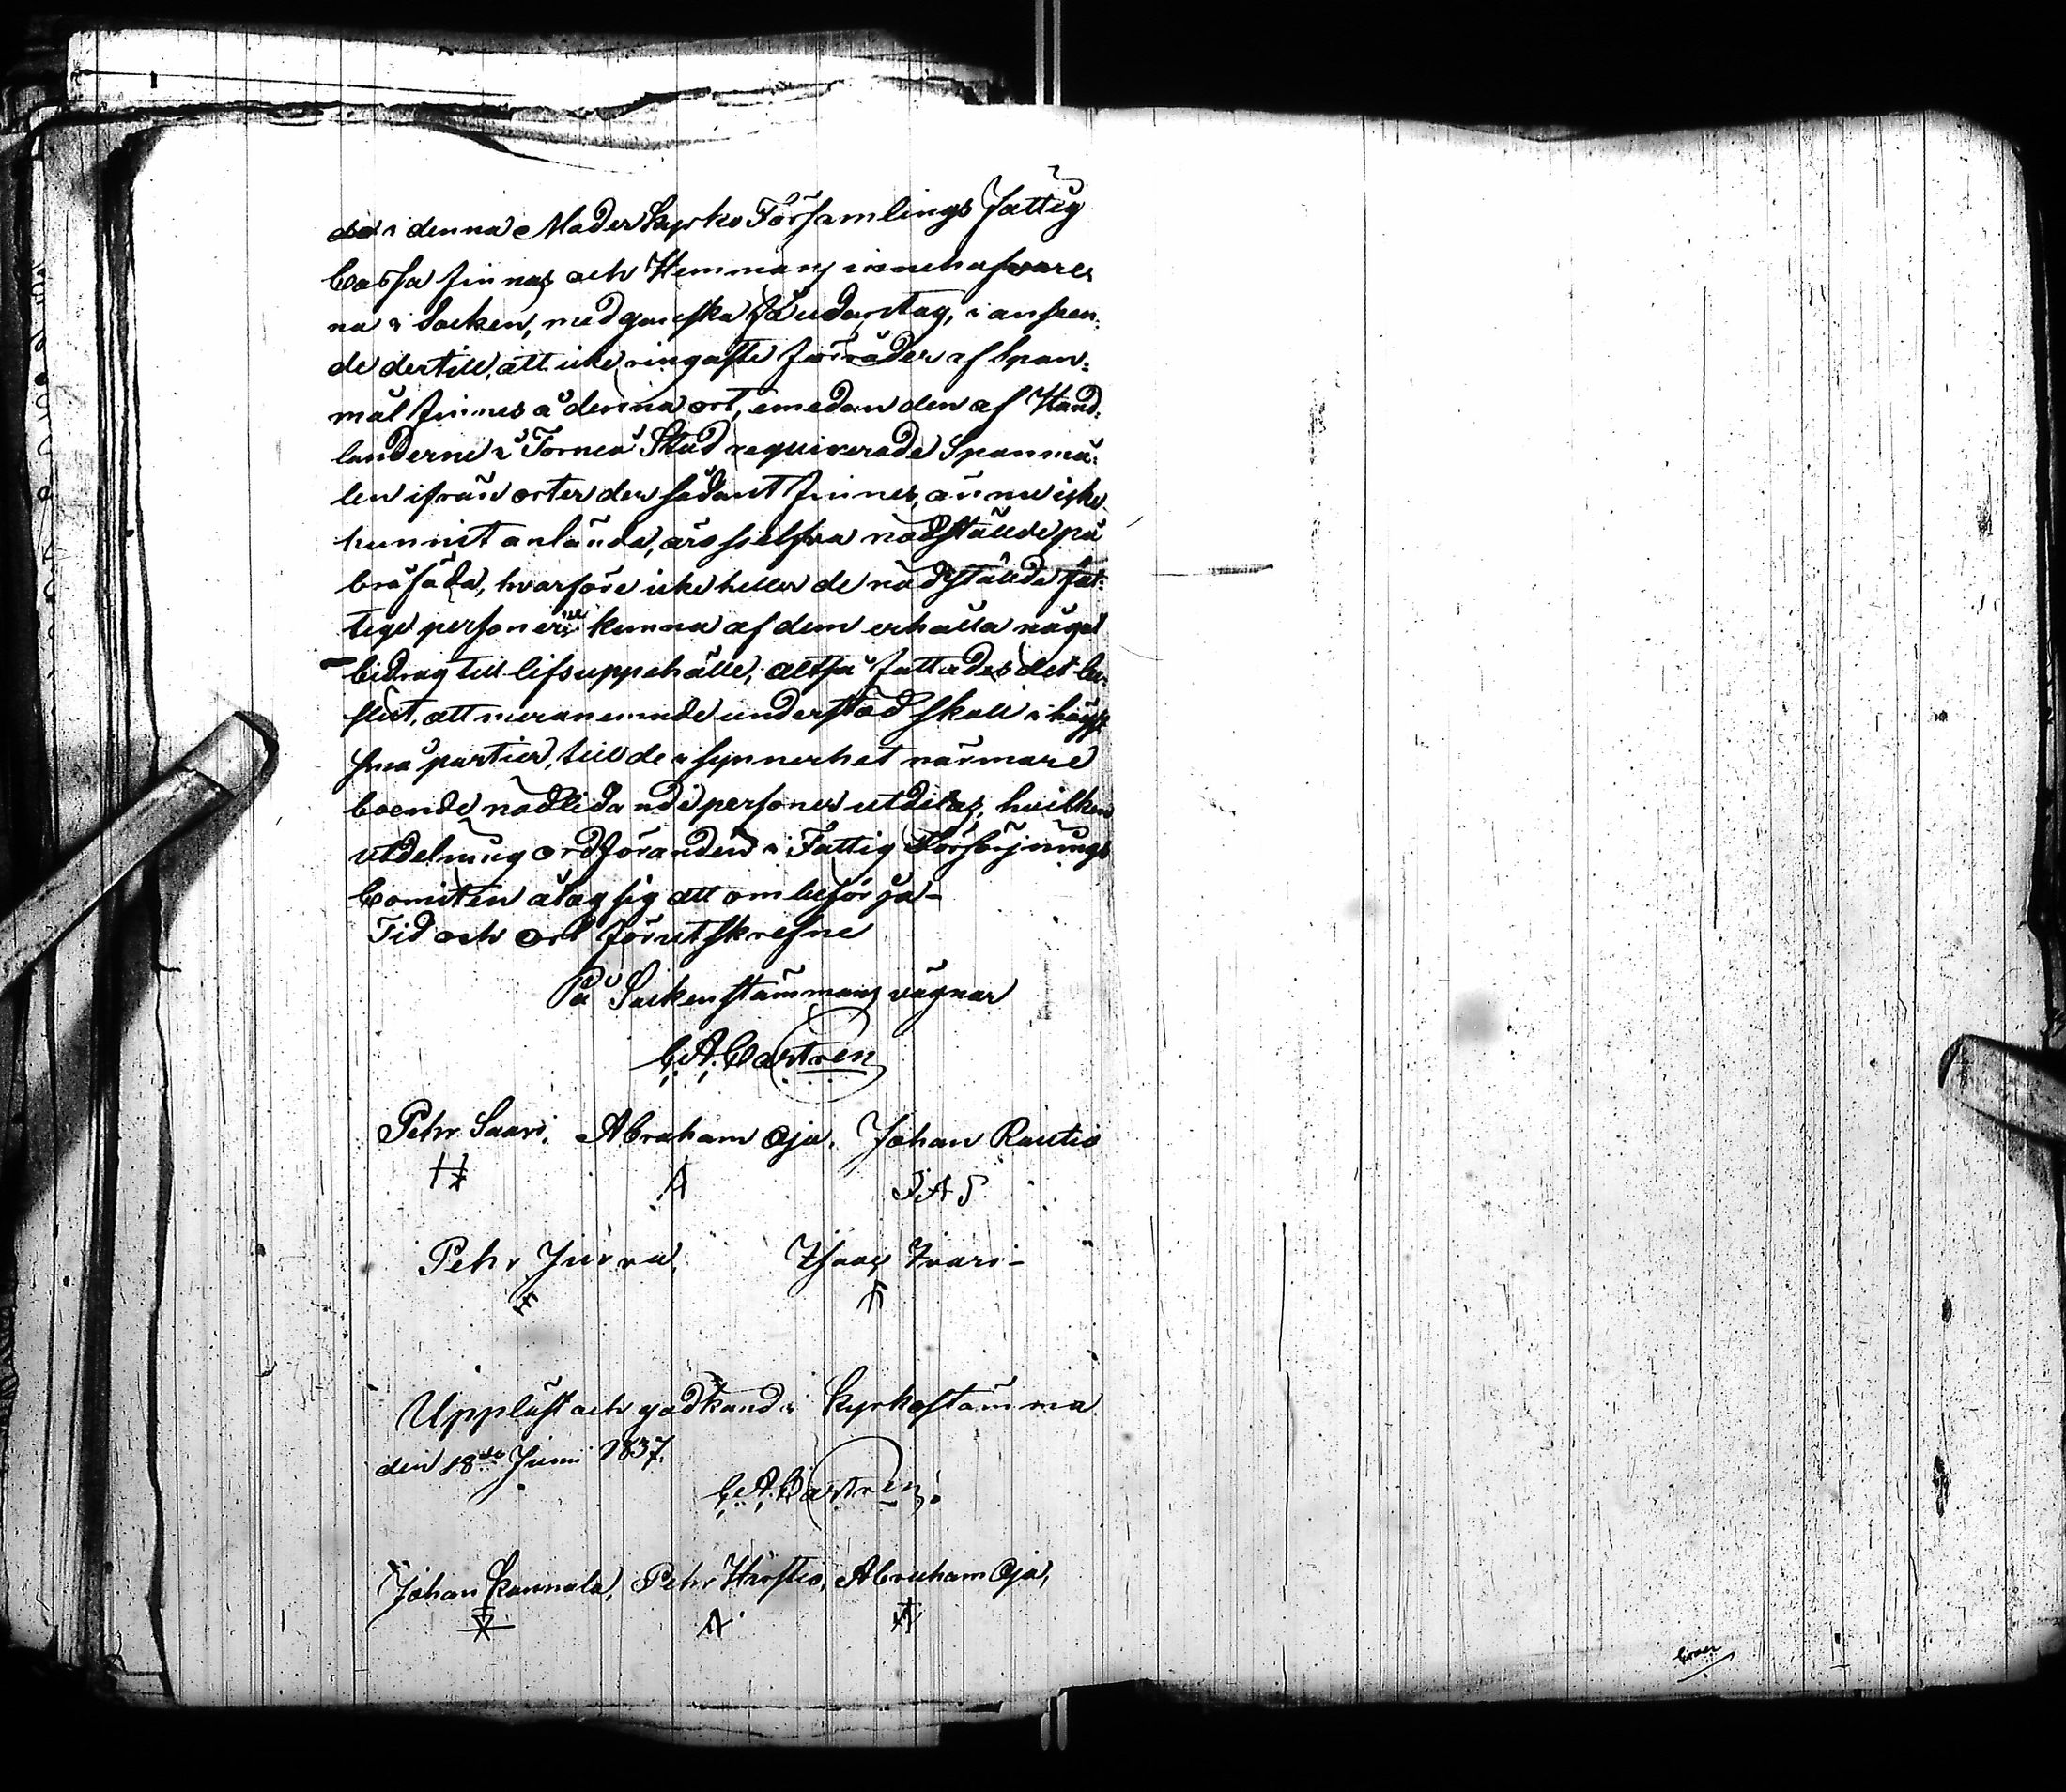 de i denna Moderkyrko Församlings Fattig
Cassa finnas och Hemmans innehafvare
na i Socken, med ganska få undantag, i anseen:
de dertill, att icke ringaste förråder af Span:
mål finnes å denna ort, emedan den af Hand:
landerne i Torneå Stad requirerade Spanmå:
len ifrån orter der sådant finnes, ännu icke
hunnit anlända, äro sjelfva nödstälde på
brösäda, hvarföre icke heller de nödstälda fat:
tige personer kunna af dem erhålla något
bidrag till lifsuppehälle; altså fattades det be:
slut, att meranemnde understöd skall i högst
små partier, till de i synnerhet närmare
boende nödlidande personer utdelas, hvilken
utdelning ordföranden i Fattig Försörjnings
Comiten åtog sig att ombesörja -
Tid och ort förutskrefne
På Sockenstämmans vägnar
C. A. Castren
Pehr Saari. Abraham Oja. Johan Rautio
J A S
Pehr Juvva, Isaac Ivari -
Uppläst och godkänd i Kyrkostämma
den 18de Junii 1837.
C. A. Castren.
Johan Kannala, Pehr Hirstio, Abraham Oja,